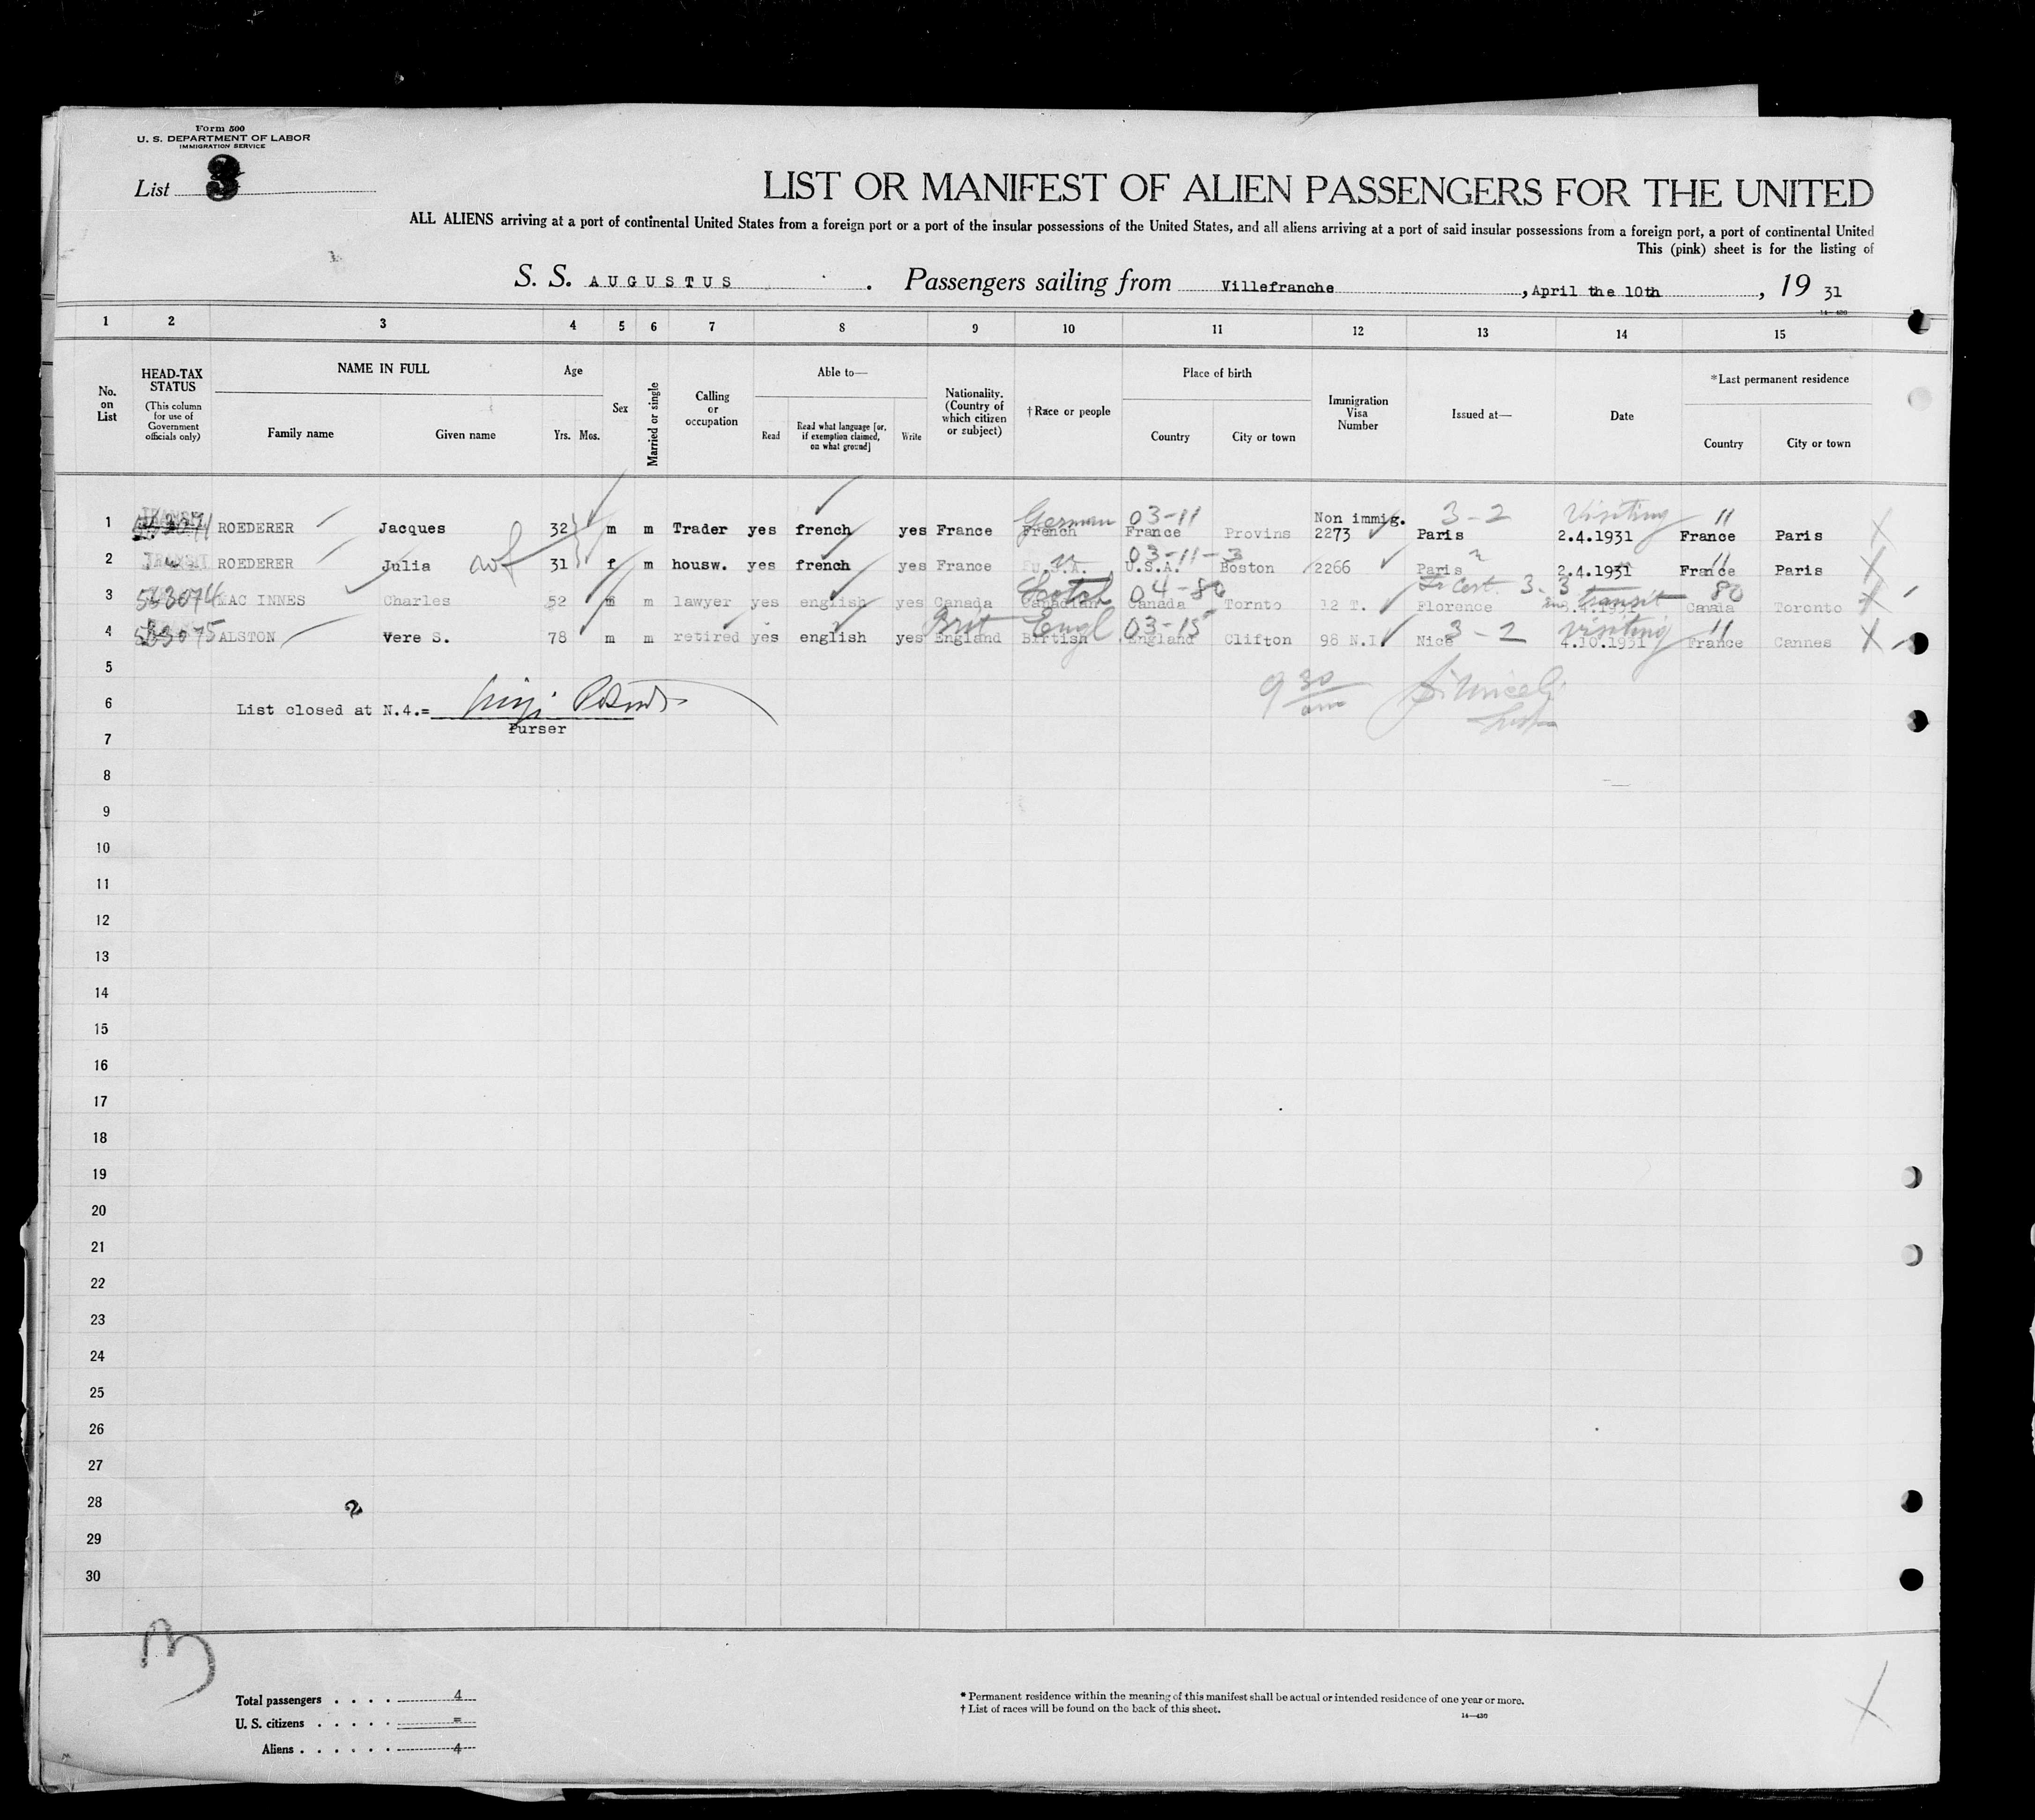 Form 500
U. S. DEPARTMENT OF LABOR
IMMIGRATION SERVICE
List 3
LIST OR MANIFEST OF ALIEN PASSENGERS FOR THE UNITED
ALL ALIENS arriving at a port of continental United States from a foreign port or a port of the insular possessions of the United States, and all aliens arriving at a port of said insular possessions from a foreign port, a port of continental United
This (pink) sheet is for the listing of
S. S. AUGUSTUS . Passengers sailing from Villefranche , April the 10th , 19 31
14—430
1 2 3 4 5 6 7 8 9 10 11 12 13 14 15
No. on List
HEAD-TAX STATUS
(This column for use of Government officials only)
NAME IN FULL
Family name Given name
Age
Yrs. Mos.
Sex
Married or single
Calling or occupation
Able to—
Read
Read what language [or, if exemption claimed, on what ground]
Write
Nationality. (Country of which citizen or subject)
†Race or people
Place of birth
Country City or town
Immigration Visa Number
Issued at—
Date
*Last permanent residence
Country City or town
German 03-11 Non immig. 3-2 Visiting 11
1 ROEDERER Jacques 32 m m Trader yes french yes France French France Provins 2273 Paris 2.4.1931 France Paris X
03-11-3 11
2 ROEDERER Julia wf 31 f m housw. yes french yes France U.S.A. U.S.A. Boston 2266 Paris 2.4.1931 France Paris X
Scotch 04-80 Cert. 3-3 transit 80
3 563074 MAC INNES Charles 52 m m lawyer yes english yes Canada Canadian Canada Tornto 12 T. Florence Canaia Toronto X
Brit Engl 03-15 3-2 Visiting 11
4 563075 ALSTON Vere S. 78 m m retired yes english yes England Birtish England Clifton 98 N.I Nice 4.10.1931 France Cannes X
5
6 List closed at N.4.=
9 30 am
Purser
7
8
9
10
11
12
13
14
15
16
17
18
19
20
21
22
23
24
25
26
27
28
2
29
30
3
Total passengers . . . . 4
U. S. citizens . . . . . =
Aliens . . . . . . 4
* Permanent residence within the meaning of this manifest shall be actual or intended residence of one year or more.
† List of races will be found on the back of this sheet.
14—430
X